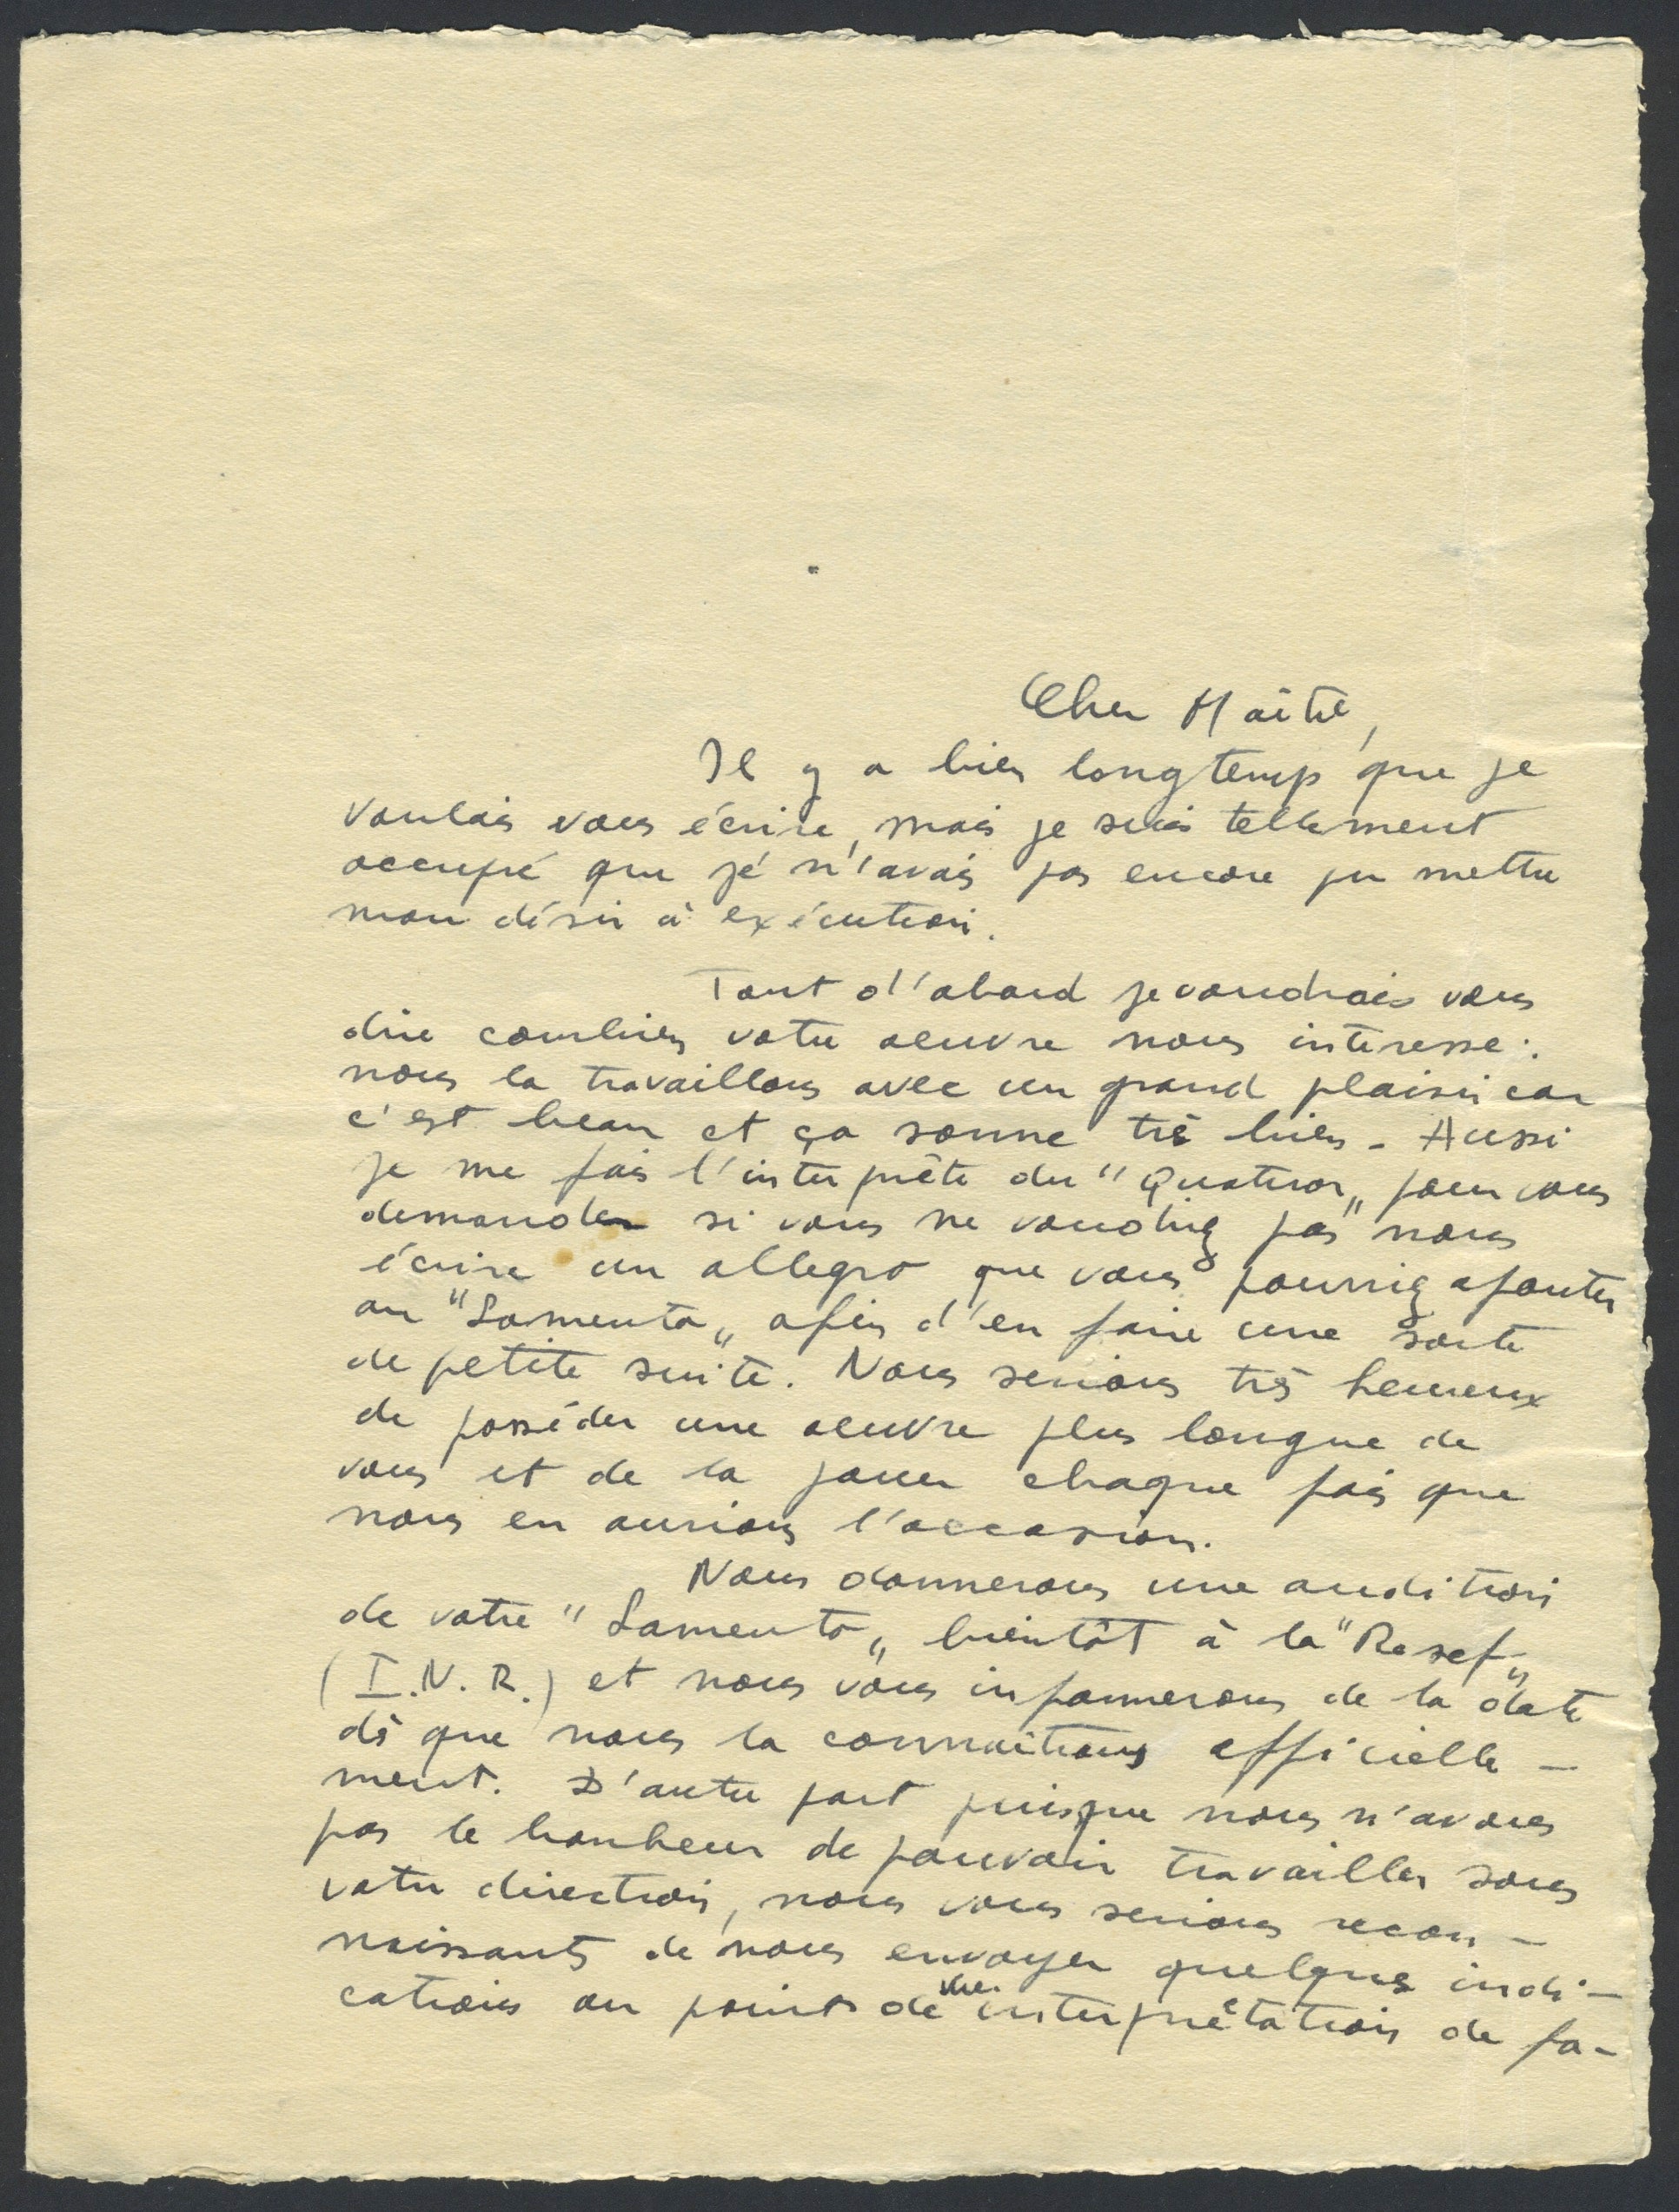 Cher Maître,
Il y a bien longtemp que je
voulais vous écrire, mais je suis tellement
occupé que je n'avais pas encore pu mettre
mon désir à exécution.
Tout d'abord je voudrais vous
dire combien votre oeuvre nous intéresse :
nous la travaillons avec un grand plaisir car
c'est beau et ça sonne très bien - Aussi
je me fais l'interprète du "Quatuor„ pour vous
demander si vous ne voudriez pas nous
écrire un allegro que vous pourriez ajouter
au "Lamento„ afin d'en faire une sorte
de petite suite. Nous serions très heureux
de posséder une oeuvre plus longue de
vous et de la jouer chaque fois que
nous en aurions l'occasion.
Nous donnerons une audition
de votre "Lamento„ bientôt à la "Resef„
(I.N.R.) et nous vous informerons de la date
dès que nous la connaîtrons officielle-
ment. D'autre part puisque nous n'avons
pas le bonheur de pouvoir travailler sous
votre direction, nous vous serions recon-
naissants de nous envoyer quelques indi-
cations au point de vue interprétation de fa-